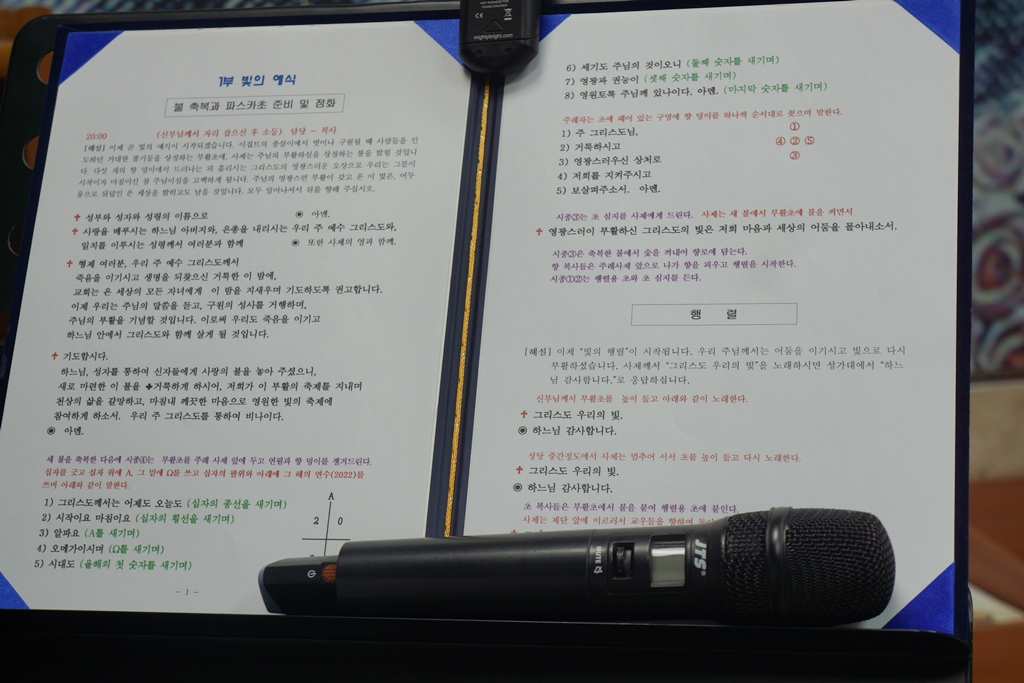 mightybright.com
1부 빛의 예식
불 축복과 파스카초 준비 및 점화
20:00 (신부님께서 자리 잡으신 후 소등) 담당 - 복사
[해설] 이제 곧 빛의 예식이 시작되겠습니다. 이집트의 종살이에서 벗어나 구원될 때 사람들을 인
도하던 거대한 불기둥을 상징하는 부활초에, 사제는 주님의 부활하심을 상징하는 불을 밝힐 것입니
다. 다섯 개의 향 덩이에서 드러나는 피 흘리시는 그리스도의 영광스러운 오상으로 우리는 그분이
시작이자 마침이신 참 주님이심을 고백하게 됩니다. 주님의 영광스런 부활이 갖고 온 이 빛은, 어두
움으로 뒤덮인 온 세상을 밝히고도 남을 것입니다. 모두 일어나셔서 뒤를 향해 주십시오.
✝ 성부와 성자와 성령의 이름으로 ◉ 아멘.
✝ 사랑을 베푸시는 하느님 아버지와, 은총을 내리시는 우리 주 예수 그리스도와,
일치를 이루시는 성령께서 여러분과 함께 ◉ 또한 사제의 영과 함께.
✝ 형제 여러분, 우리 주 예수 그리스도께서
죽음을 이기시고 생명을 되찾으신 거룩한 이 밤에,
교회는 온 세상의 모든 자녀에게 이 밤을 지새우며 기도하도록 권고합니다.
이제 우리는 주님의 말씀을 듣고, 구원의 성사를 거행하며,
주님의 부활을 기념할 것입니다. 이로써 우리도 죽음을 이기고
하느님 안에서 그리스도와 함께 살게 될 것입니다.
✝ 기도합시다.
하느님, 성자를 통하여 신자들에게 사랑의 불을 놓아 주셨으니,
새로 마련한 이 불을 ✚거룩하게 하시어, 저희가 이 부활의 축제를 지내며
천상의 삶을 갈망하고, 마침내 깨끗한 마음으로 영원한 빛의 축제에
참여하게 하소서. 우리 주 그리스도를 통하여 비나이다.
◉ 아멘.
새 불을 축복한 다음에 시종④는 부활초를 주례 사제 앞에 두고 연필과 향 덩이를 챙겨드린다.
십자를 긋고 십자 위에 A, 그 밑에 Ω를 쓰고 십자의 팔위와 아래에 그 해의 연수(2022)를
쓰며 아래와 같이 말한다.
1) 그리스도께서는 어제도 오늘도 (십자의 종선을 새기며)
2) 시작이요 마침이요 (십자의 횡선을 새기며)
3) 알파요 (A를 새기며)
4) 오메가이시며 (Ω를 새기며)
5) 시대도 (올해의 첫 숫자를 새기며)
A
2 0
- 1 -
6) 세기도 주님의 것이오니 (둘째 숫자를 새기며)
7) 영광과 권능이 (셋째 숫자를 새기며)
8) 영원토록 주님께 있나이다. 아멘. (마지막 숫자를 새기며)
주례자는 초에 패어 있는 구멍에 향 덩이를 하나씩 순서대로 꽂으며 말한다.
1) 주 그리스도님, ①
2) 거룩하시고 ④ ② ⑤
3) 영광스러우신 상처로 ③
4) 저희를 지켜주시고
5) 보살펴주소서. 아멘.
시종③는 초 심지를 사제에게 드린다. 사제는 새 불에서 부활초에 불을 켜면서
✝ 영광스러이 부활하신 그리스도의 빛은 저희 마음과 세상의 어둠을 몰아내소서.
시종③은 축복한 불에서 숯을 꺼내어 향로에 담는다.
향 복사들은 주례사제 앞으로 나가 향을 피우고 행렬을 시작한다.
시종①②는 행렬용 초와 초 심지를 든다.
행 렬
[해설] 이제 “빛의 행렬”이 시작됩니다. 우리 주님께서는 어둠을 이기시고 빛으로 다시
부활하셨습니다. 사제께서 “그리스도 우리의 빛”을 노래하시면 성가대에서 “하느
님 감사합니다.”로 응답하십니다.
신부님께서 부활초를 높이 들고 아래와 같이 노래한다.
✝ 그리스도 우리의 빛.
◉ 하느님 감사합니다.
성당 중간정도에서 사제는 멈추어 서서 초를 높이 들고 다시 노래한다.
✝ 그리스도 우리의 빛.
◉ 하느님 감사합니다.
초 복사들은 부활초에서 불을 붙여 행렬용 초에 붙인다.
사제는 제단 앞에 이르러서 교우들을 향하여
MUTE
JTS